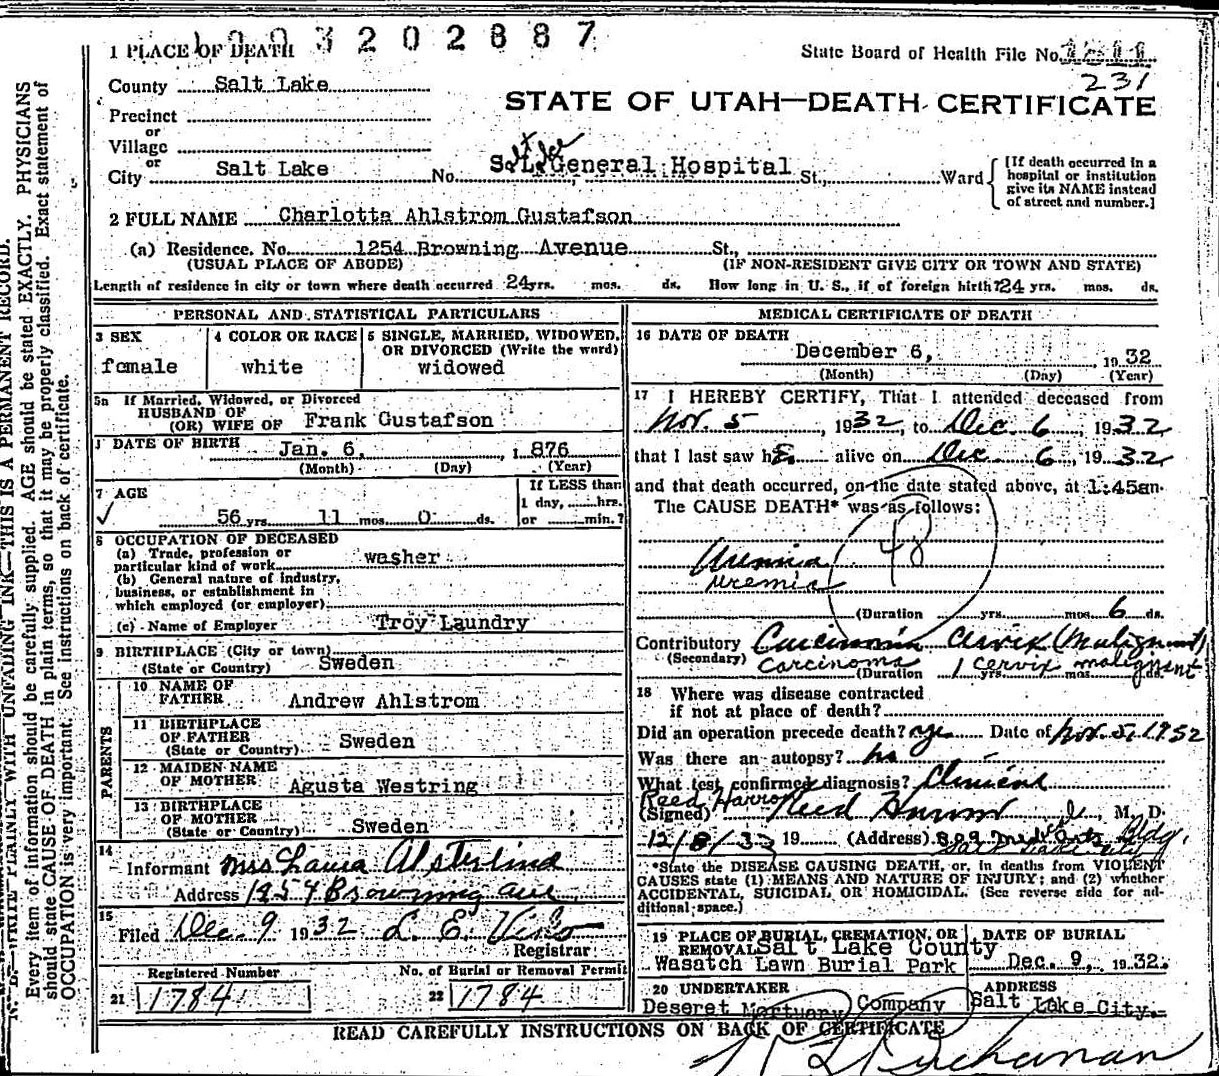 1 PLACE OF DEATH
1 0 0 3 2 0 2 8 8 7
State Board of Health File No.
231
County Salt Lake
STATE OF UTAH—DEATH CERTIFICATE
Precinct
or
Village
or
City Salt Lake No. S. L. General Hospital St., Ward
[If death occurred in a
hospital or institution
give its NAME instead
of street and number.]
2 FULL NAME Charlotta Ahlstrom Gustafson
(a) Residence. No. 1254 Browning Avenue St.,
(USUAL PLACE OF ABODE) (IF NON-RESIDENT GIVE CITY OR TOWN AND STATE)
Length of residence in city or town where death occurred 24 yrs. mos. ds. How long in U. S., if of foreign birth? 24 yrs. mos. ds.
PERSONAL AND STATISTICAL PARTICULARS
3 SEX
female
4 COLOR OR RACE
white
5 SINGLE, MARRIED, WIDOWED,
OR DIVORCED (Write the word)
widowed
5a If Married, Widowed, or Divorced
HUSBAND OF
(OR) WIFE OF Frank Gustafson
DATE OF BIRTH Jan. 6, 1 876
(Month) (Day) (Year)
7 AGE
If LESS than
1 day, hrs.
or min.?
56 yrs 11 mos 0 ds.
8 OCCUPATION OF DECEASED
(a) Trade, profession or
particular kind of work washer
(b) General nature of industry,
business, or establishment in
which employed (or employer)
(c) Name of Employer Troy Laundry
9 BIRTHPLACE (City or town)
(State or Country) Sweden
PARENTS
10 NAME OF
FATHER Andrew Ahlstrom
11 BIRTHPLACE
OF FATHER
(State or Country) Sweden
12 MAIDEN NAME
OF MOTHER Agusta Westring
13 BIRTHPLACE
OF MOTHER
(State or Country) Sweden
14
Informant Mrs Laura Alsterlind
Address 1254 Browning Ave
15
Filed Dec. 9 1932 L. E. Viko
Registrar
Registered Number No. of Burial or Removal Permit
21 1784 22 1784
MEDICAL CERTIFICATE OF DEATH
16 DATE OF DEATH
December 6, 1932
(Month) (Day) (Year)
17 I HEREBY CERTIFY, That I attended deceased from
Nov. 5, 1932, to Dec. 6, 1932
that I last saw her alive on Dec. 6, 1932
and that death occurred, on the date stated above, at 1:45am.
The CAUSE DEATH* was as follows:
48
Uremia
uremia
(Duration yrs. mos. 6 ds.
Contributory Carcinoma Cervix (Malignant)
(Secondary) Carcinoma cervix malignant
(Duration 1 yrs. mos. ds.
18 Where was disease contracted
if not at place of death?
Did an operation precede death? yes Date of Nov. 5, 1932
Was there an autopsy? no
What test confirmed diagnosis? Clinical
Reed Harrow
(Signed) M. D.
12/8/32 19 (Address) 809 Medical Arts Bldg.
*State the DISEASE CAUSING DEATH, or, in deaths from VIOLENT
CAUSES state (1) MEANS AND NATURE OF INJURY; and (2) whether
ACCIDENTAL, SUICIDAL OR HOMICIDAL. (See reverse side for ad-
ditional space.)
19 PLACE OF BURIAL, CREMATION, OR
REMOVAL Salt Lake County
Wasatch Lawn Burial Park
DATE OF BURIAL
Dec. 9, 1932.
20 UNDERTAKER
Deseret Mortuary Company
ADDRESS
Salt Lake City.
READ CAREFULLY INSTRUCTIONS ON BACK OF CERTIFICATE
Buchanan
N. B.—WRITE PLAINLY WITH UNFADING INK—THIS IS A PERMANENT RECORD.
Every item of information should be carefully supplied. AGE should be stated EXACTLY. PHYSICIANS
should state CAUSE OF DEATH in plain terms, so that it may be properly classified. Exact statement of
OCCUPATION is very important. See instructions on back of certificate.